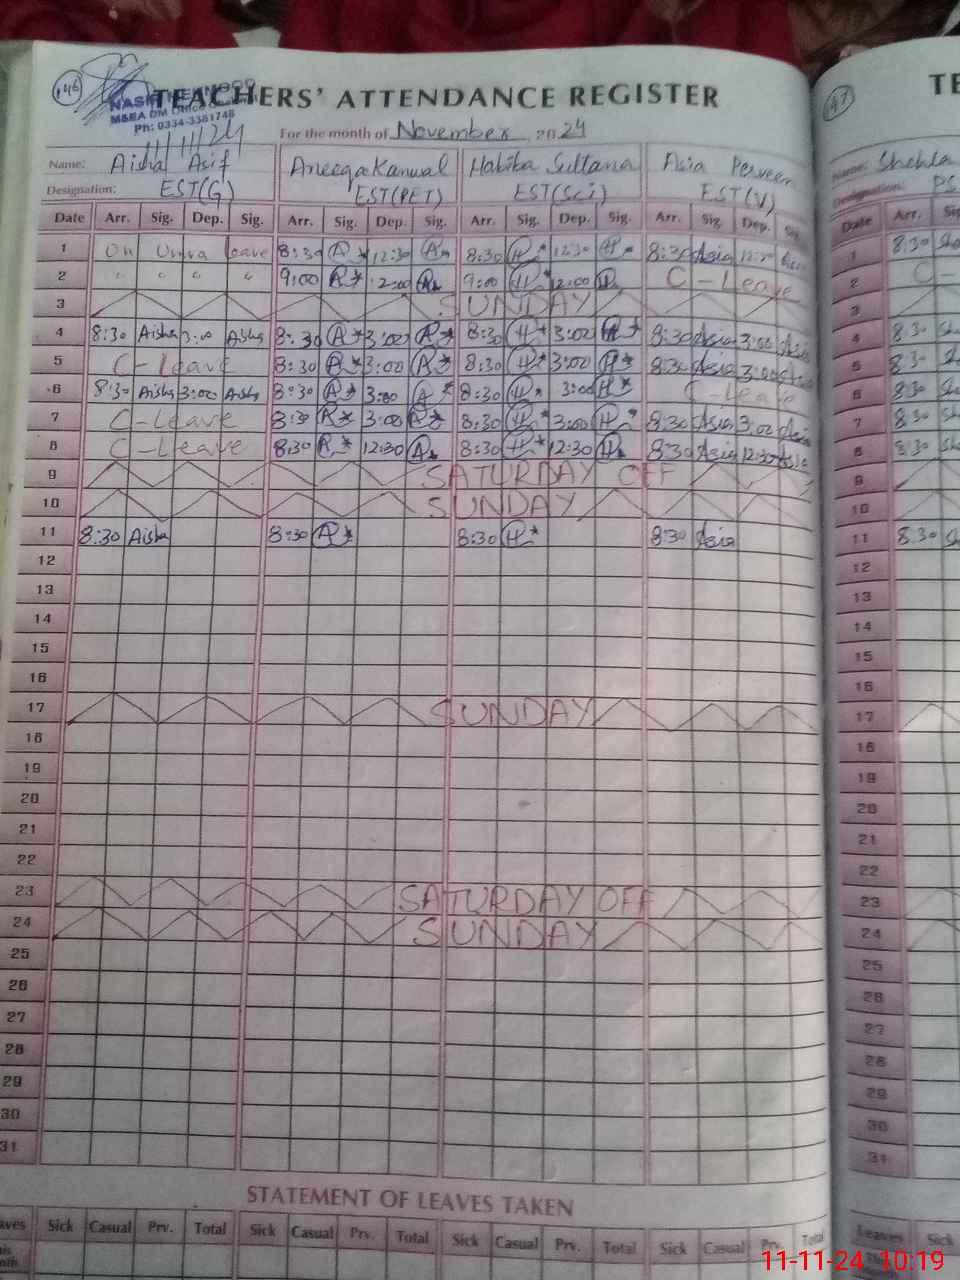 146
TEACHERS' ATTENDANCE REGISTER
M&EA DM Office
Ph: 0334-3381748
11/11/24
For the month of November 2024
Name: Aisha Asif Aneeqa Kanwal Habiba Sultana Asia Perveen
Designation: EST(G) EST(PET) EST(Sci) EST(V)
Date Arr. Sig. Dep. Sig. Arr. Sig. Dep. Sig. Arr. Sig. Dep. Sig. Arr. Sig. Dep. Sig.
1 On Umra leave 8:30 A 12:30 A 8:30 H 12:30 H 8:30 Asia
2 " " " " 9:00 A 12:00 A 9:00 H 12:00 H C-Leave
3 SUNDAY
4 8:30 Aisha 3:00 Aisha 8:30 A 3:00 A 8:30 H 3:00 H 8:30 Asia 3:00 Asia
5 C-Leave 8:30 A 3:00 A 8:30 H 3:00 H 8:30 Asia 3:00 Asia
6 8:30 Aisha 3:00 Aisha 8:30 A 3:00 A 8:30 H 3:00 H C-Leave
7 C-Leave 8:30 A 3:00 A 8:30 H 3:00 H 8:30 Asia 3:00 Asia
8 C-Leave 8:30 A 12:30 A 8:30 H 12:30 H 8:30 Asia 12:30 Asia
9 SATURDAY OFF
10 SUNDAY
11 8:30 Aisha 8:30 A 8:30 H 8:30 Asia
12
13
14
15
16
17 SUNDAY
18
19
20
21
22
23 SATURDAY OFF
24 SUNDAY
25
26
27
28
29
30
31
STATEMENT OF LEAVES TAKEN
Sick Casual Prv. Total Sick Casual Prv. Total Sick Casual Prv. Total Sick Casual Prv. Total
147
TE
Name: Shehla
Designation: PS
Date Arr. Sig
1 8:30 Sh
2 C-
3
4 8:30 Sh
5 8:30 Sh
6 8:30 Sh
7 8:30 Sh
8 8:30 Sh
9
10
11 8:30 Sh
12
13
14
15
16
17
18
19
20
21
22
23
24
25
26
27
28
29
30
31
Leaves Sick
11-11-24 10:19